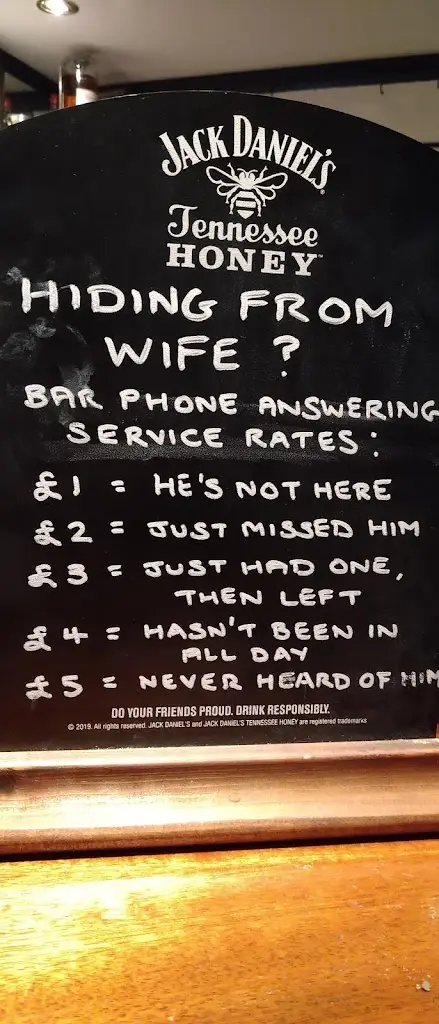 JACK DANIEL'S
Tennessee
HONEY™
HIDING FROM
WIFE ?
BAR PHONE ANSWERING
SERVICE RATES :
£1 = HE'S NOT HERE
£2 = JUST MISSED HIM
£3 = JUST HAD ONE,
THEN LEFT
£4 = HASN'T BEEN IN
ALL DAY
£5 = NEVER HEARD OF HIM
DO YOUR FRIENDS PROUD. DRINK RESPONSIBLY.
© 2019. All rights reserved. JACK DANIEL'S and JACK DANIEL'S TENNESSEE HONEY are registered trademarks